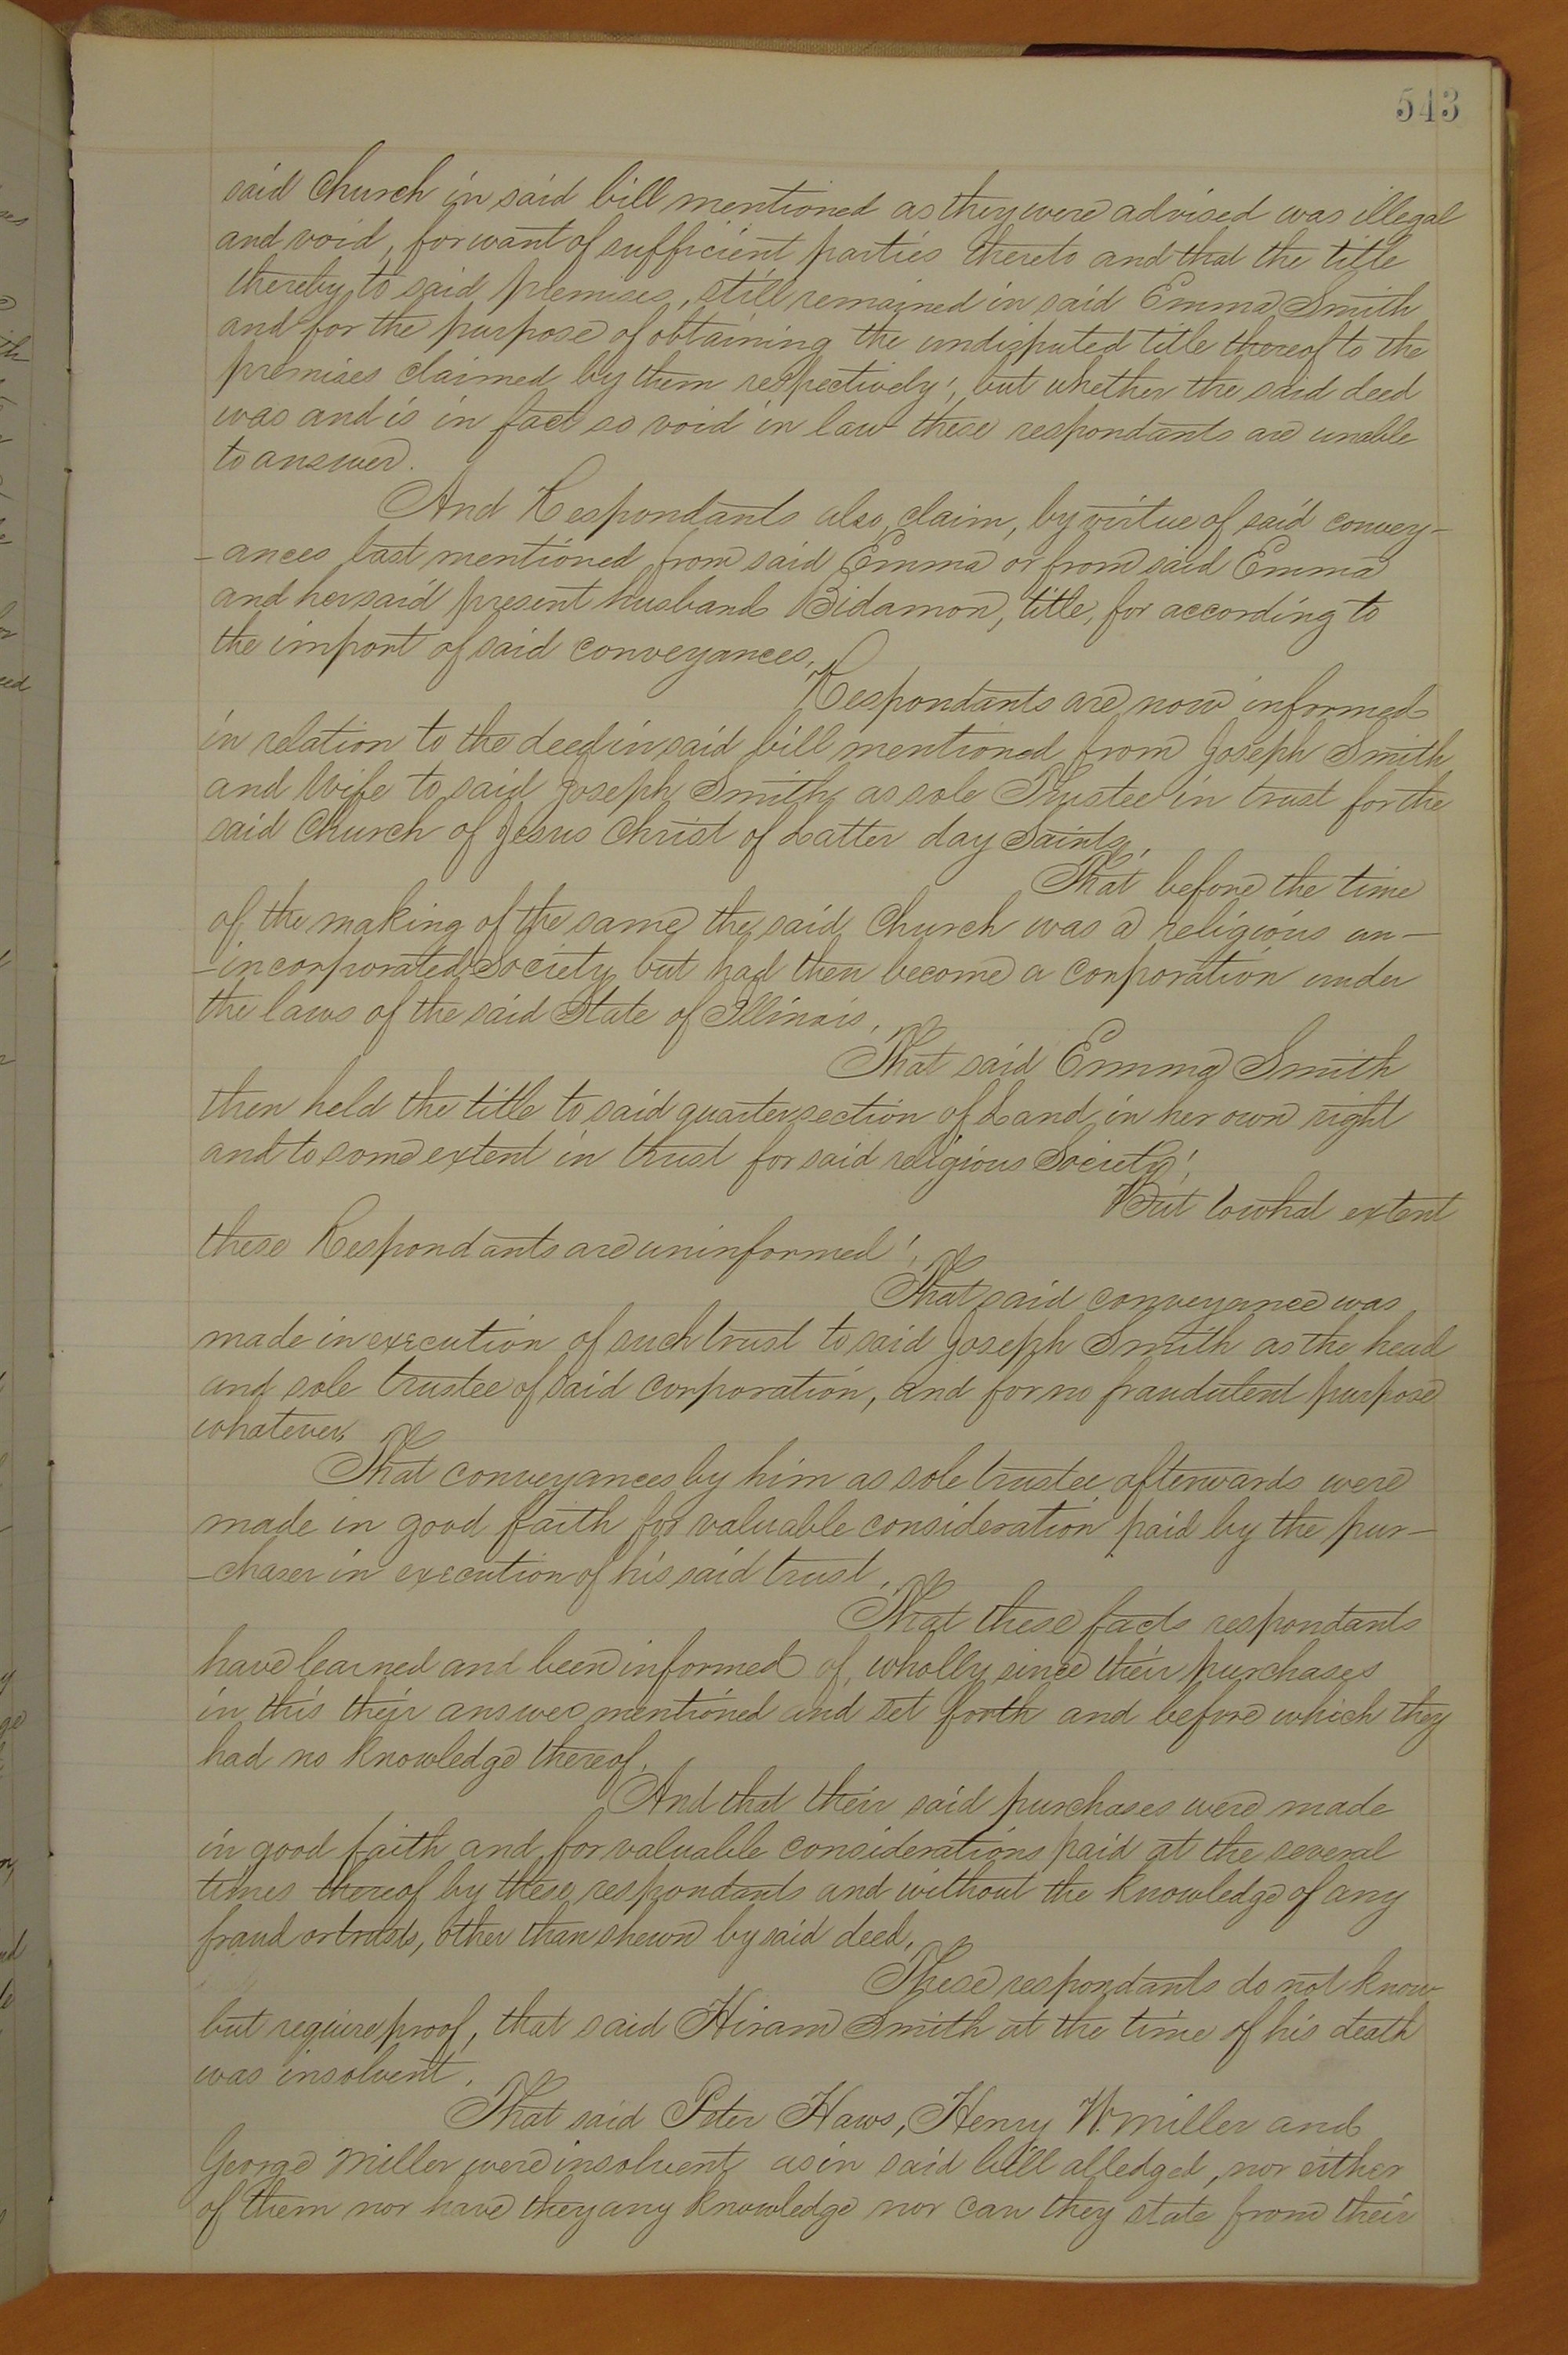 543
said Church in said bill mentioned as they were advised was illegal
and void, for want of sufficient parties thereto and that the title
thereby to said premises, still remained in said Emma Smith
and for the purpose of obtaining the undisputed title thereof to the
premises claimed by them respectively, but whether the said deed
was and is in fact so void in law these respondants are unable
to answer.
And Respondants also, claim, by virtue of said convey-
-ances last mentioned from said Emma or from said Emma
and her said present husband Bidamon, title, for according to
the import of said conveyances,
Respondants are now informed
in relation to the deed in said bill mentioned from Joseph Smith
and Wife to said Joseph Smith as sole Trustee in trust for the
said Church of Jesus Christ of Latter day Saints,
That before the time
of the making of the same the said Church was a religious un-
-incorporated Society but had then become a corporation under
the laws of the said State of Illinois,
That said Emma Smith
then held the title to said quarter section of Land in her own right
and to some extent in trust for said religious Society!,
But to what extent
these Respondants are uninformed!,
That said conveyance was
made in execution of such trust to said Joseph Smith as the head
and sole trustee of said corporation, and for no fraudulent purpose
whatever.
That conveyances by him as sole trustee afterwards were
made in good faith for valuable consideration paid by the pur-
-chaser in execution of his said trust,
That these facts respondants
have learned and been informed of, wholly since their purchases
in this their answer mentioned and set forth and before which they
had no knowledge thereof,
And that their said purchases were made
in good faith and for valuable considerations paid at the several
times thereof by these respondants and without the knowledge of any
fraud or trusts, other than shewn by said deed,
These respondants do not know
but require proof, that said Hiram Smith at the time of his death
was insolvent,
That said Peter Haws, Henry W. Miller and
George Miller were insolvent as in said bill alledged, nor either
of them nor have they any knowledge nor can they state from their